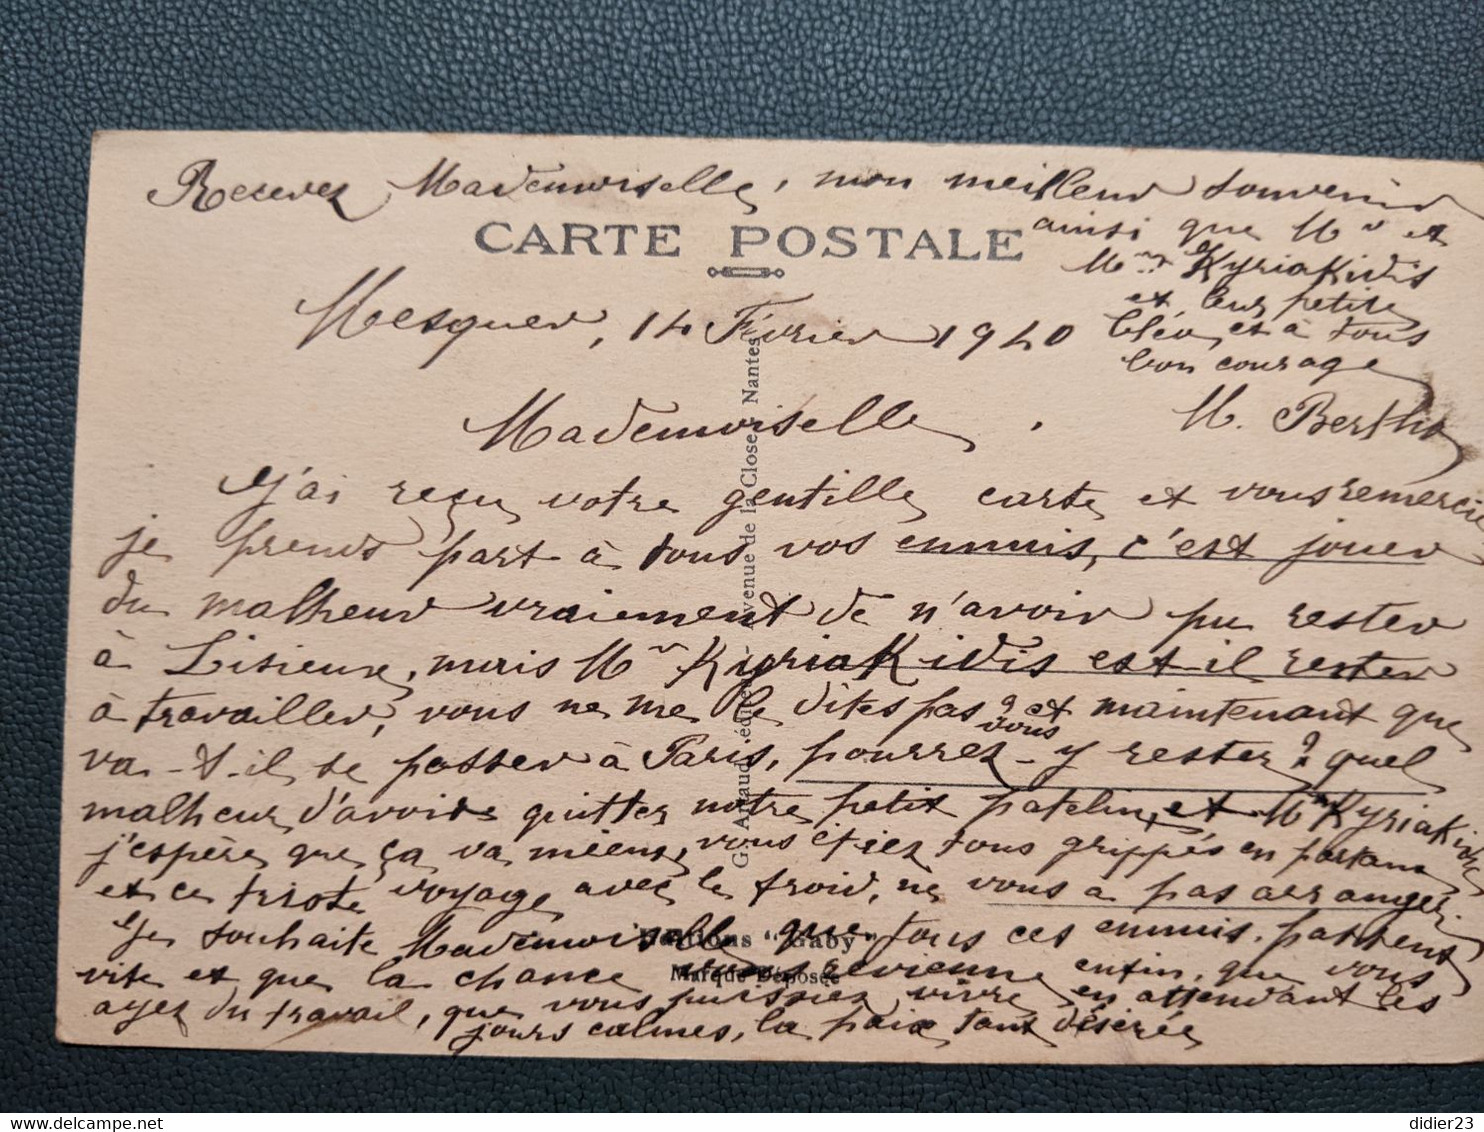 Recevez Mademoiselle, mon meilleur souvenir
ainsi que Mr et
Mme Kyriakidis
et leur petite
Cléo, et à tous
bon courage
M. Berthio
CARTE POSTALE
Mesquer, 14 Février 1940
Mademoiselle.
J'ai reçu votre gentille carte et vous remercie
je prends part à tous vos ennuis, c'est jouer
du malheur vraiment de n'avoir pu rester
à Lisieux, mais Mr Kyriakidis est il rester
à travailler, vous ne me le dites pas? et maintenant que
va-t-il se passer à Paris, pourrez-vous y rester? quel
malheur d'avoir quitter notre petit patelin, et Mme Kyriakidis
j'espère que ça va mieux, vous étiez tous grippés en partant
et ce triste voyage avec le froid, ne vous a pas arranger.
Je souhaite Mademoiselle que tous ces ennuis passent
vite et que la chance vous revienne enfin, que vous
ayez du travail, que vous puissiez vivre en attendant les
jours calmes, la paix tant désirée
G. Artaud, éditeur - Avenue de la Close, Nantes
Editions "Gaby"
Marque Déposée
didier23